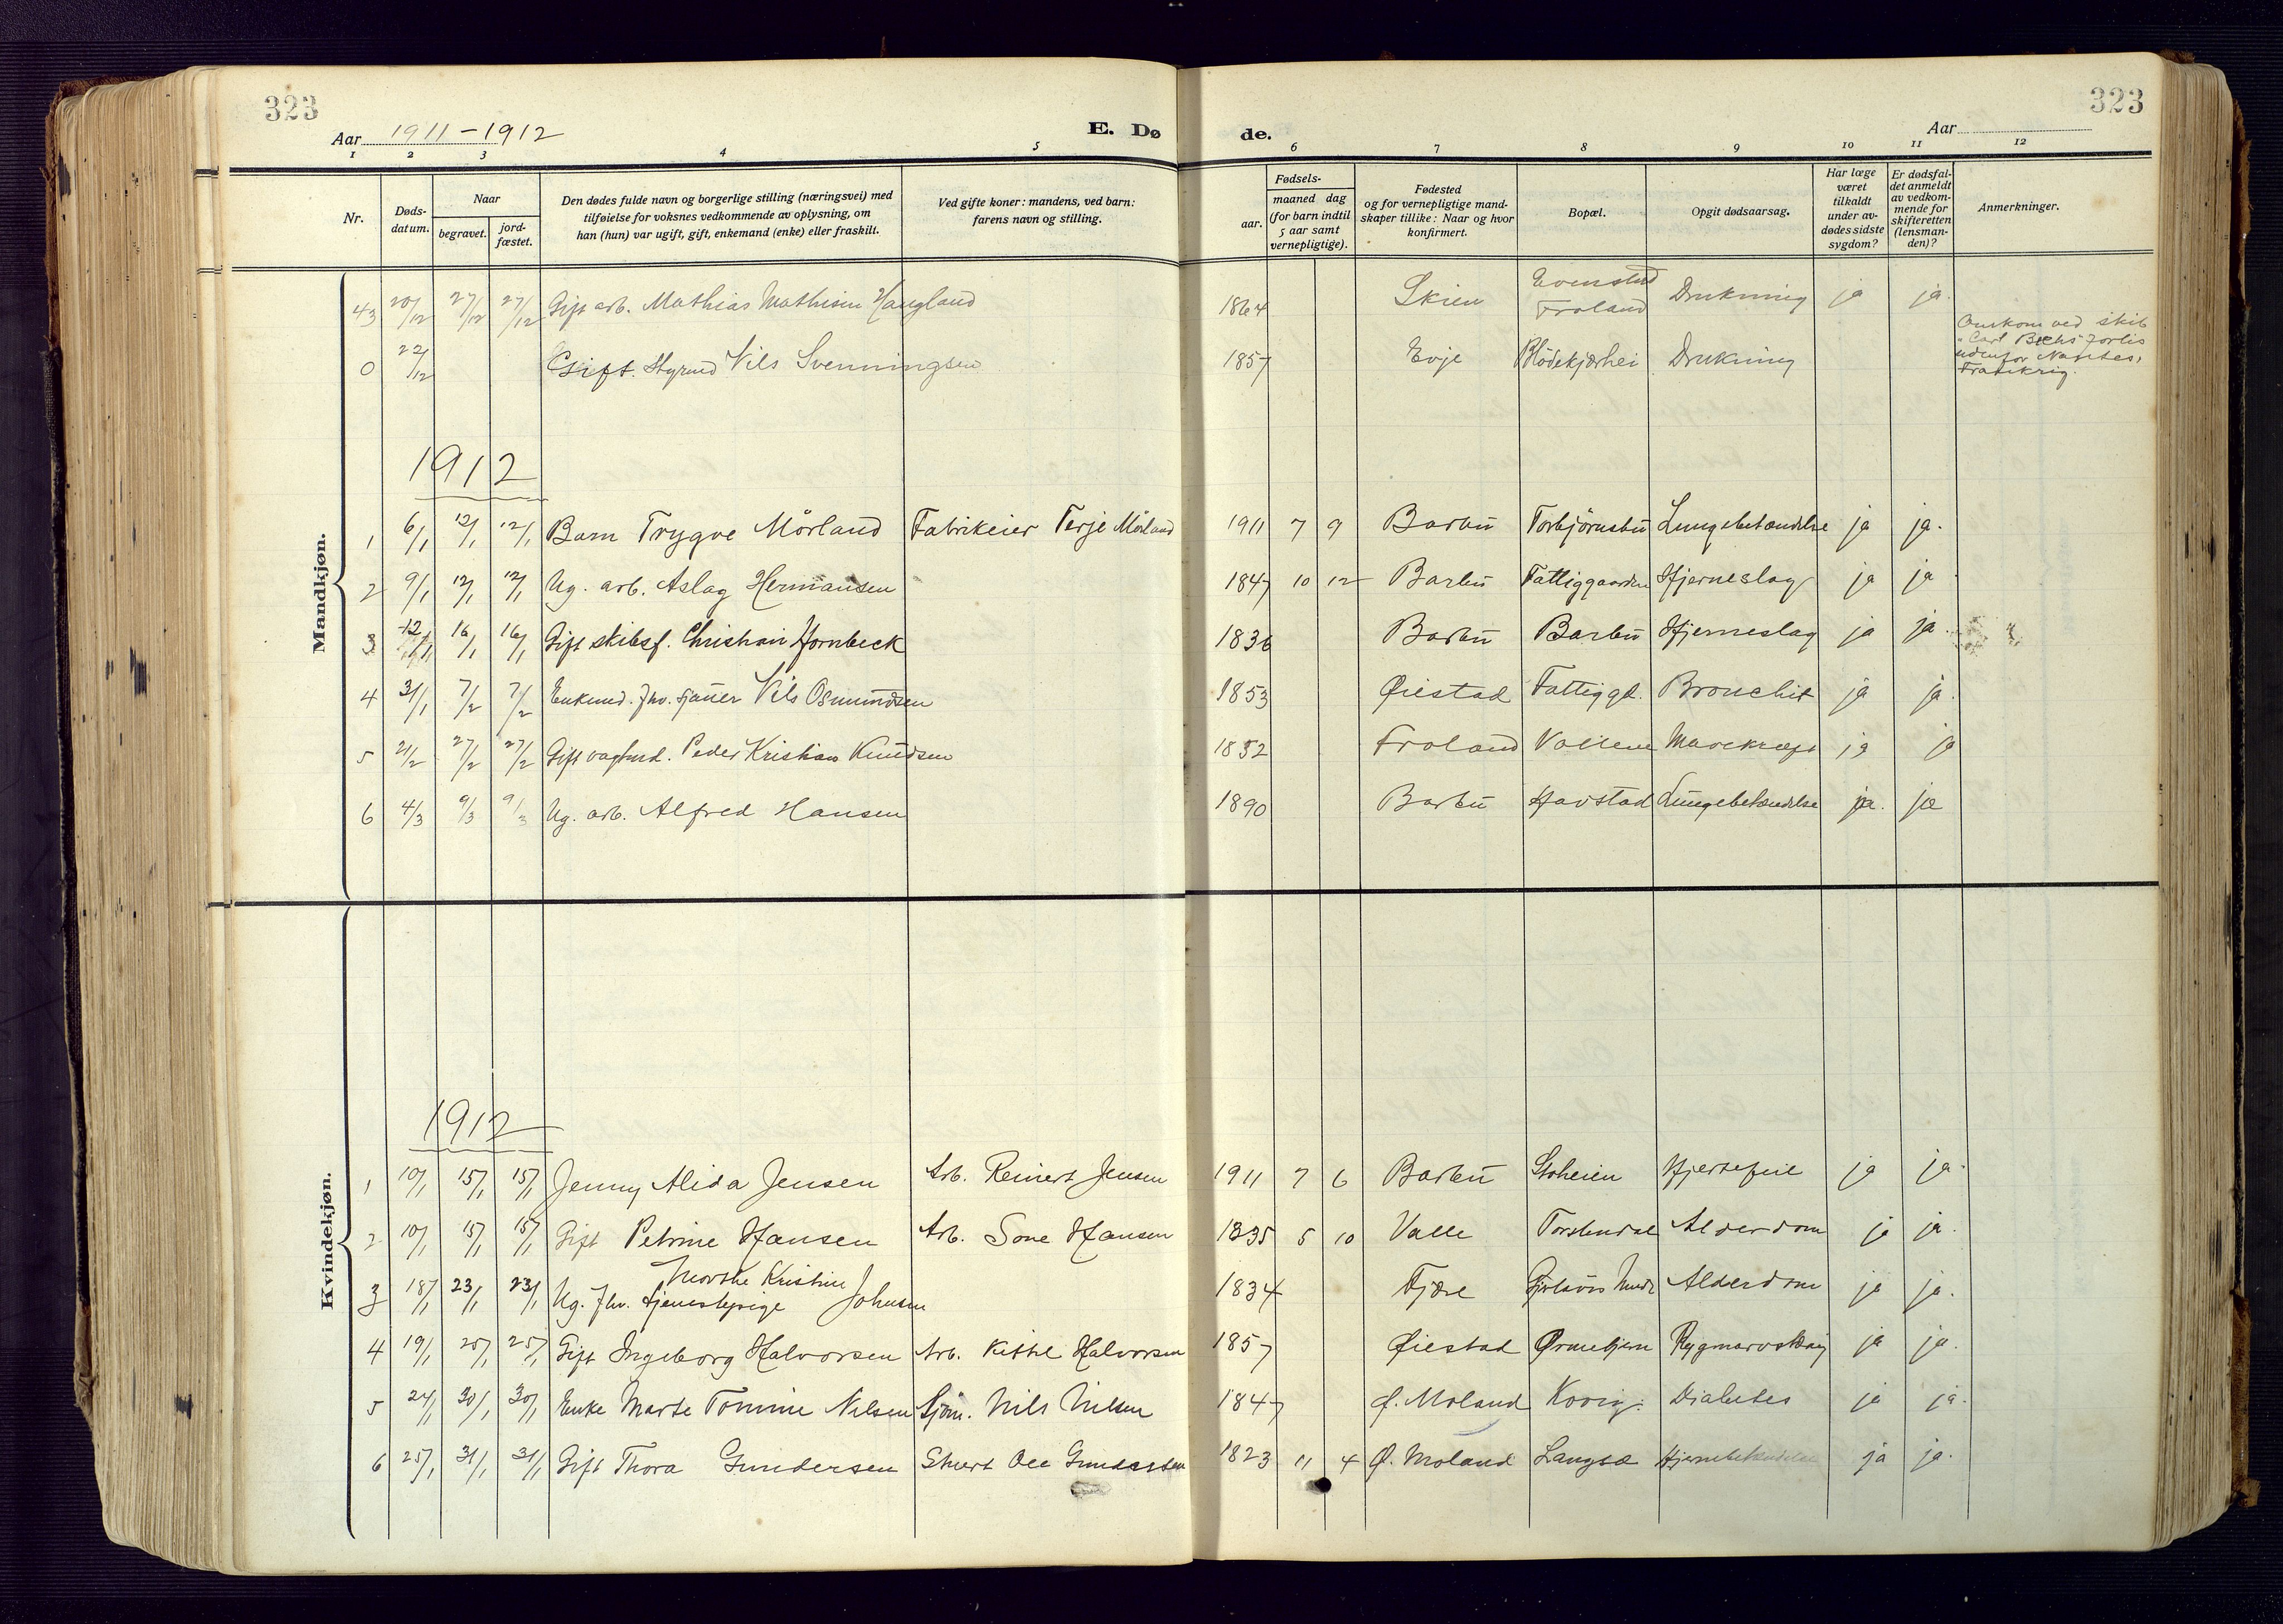 323
323
Aar 1911-1912
E. Dø
de.
Aar
1 2 3 4 5 6 7 8 9 10 11 12
Nr.
Døds-
datum.
Naar
begravet.
jord-
fæstet.
Den dødes fulde navn og borgerlige stilling (næringsvei) med
tilføielse for voksnes vedkommende av oplysning, om
han (hun) var ugift, gift, enkemand (enke) eller fraskilt.
Ved gifte koner: mandens, ved barn:
farens navn og stilling.
Fødsels-
aar.
maaned dag
(for barn indtil
5 aar samt
vernepligtige).
Fødested
og for vernepligtige mand-
skaper tillike: Naar og hvor
konfirmert.
Bopæl.
Opgit dødsaarsag.
Har læge
været
tilkaldt
under av-
dødes sidste
sygdom?
Er dødsfal-
det anmeldt
av vedkom-
mende for
skifteretten
(lensman-
den)?
Anmerkninger.
Mandkjøn.
43 20/12 27/12 27/12 Gift arb. Mathias Mathisen Haugland 1864 Skien Evenstad Froland Drukning ja ja.
0 22/12 Gift. Styrmd Nils Svenningsen 1857 Evje Blödekjærhei Drukning
Omkom ved skib
"Carl Bechs" forlis
udenfor Nantes,
Frankrig.
1912
1 6/1 12/1 12/1 Barn Trygve Mörland Fabrikeier Terje Mörland 1911 7 9 Barbu Torbjörnsbu Lungebetændelse ja ja.
2 9/1 12/1 12/1 Ug. arb. Aslag Hermansen 1847 10 12 Barbu Fattiggaarden Hjerneslag ja ja
3 12/1 16/1 16/1 Gift skibsf. Christian Hornbeck 1836 Barbu Barbu Hjerneslag ja ja.
4 31/1 7/2 7/2 Enkemd. fhv. tjauer Nils Osmundsen 1853 Øiestad Fattiggd. Bronchit ja ja.
5 21/2 27/2 27/2 Gift vagtmd. Peder Kristian Knudsen 1832 Froland Vollene Mavekræft ja ja
6 4/3 9/3 9/3 Ug. arb. Alfred Hansen 1890 Barbu Havstad Lungebetændelse ja. ja
Kvindekjøn.
1912
1 10/1 15/1 15/1 Jenny Alida Jensen Arb. Reinert Jensen 1911 7 6 Barbu Stoheien Hjertefeil ja ja.
2 10/1 15/1 15/1 Gift Petrine Hansen Arb. Sone Hansen 1835 5 10 Valle Torstendal Alderdom ja ja.
3 18/1 23/1 23/1 Ug. fhv. tjenestepige Kristine Johnsen 1834 Fjære Alderdom ja ja.
4 19/1 25/1 25/1 Gift Ingeborg Halvorsen Arb. Kittel Halvorsen 1857 Øiestad Ørnebjern ja ja.
5 24/1 30/1 30/1 Enke Marte Tomine Nilsen Sjøm. Nils Nilsen 1847 Ø. Moland Kovig. Diabetes ja ja.
6 25/1 31/1 31/1 Gift Thora Gundersen Stuert Ole Gundersen 1823 11 4 Ø. Moland Langsæ Hjernebetændelse ja ja.